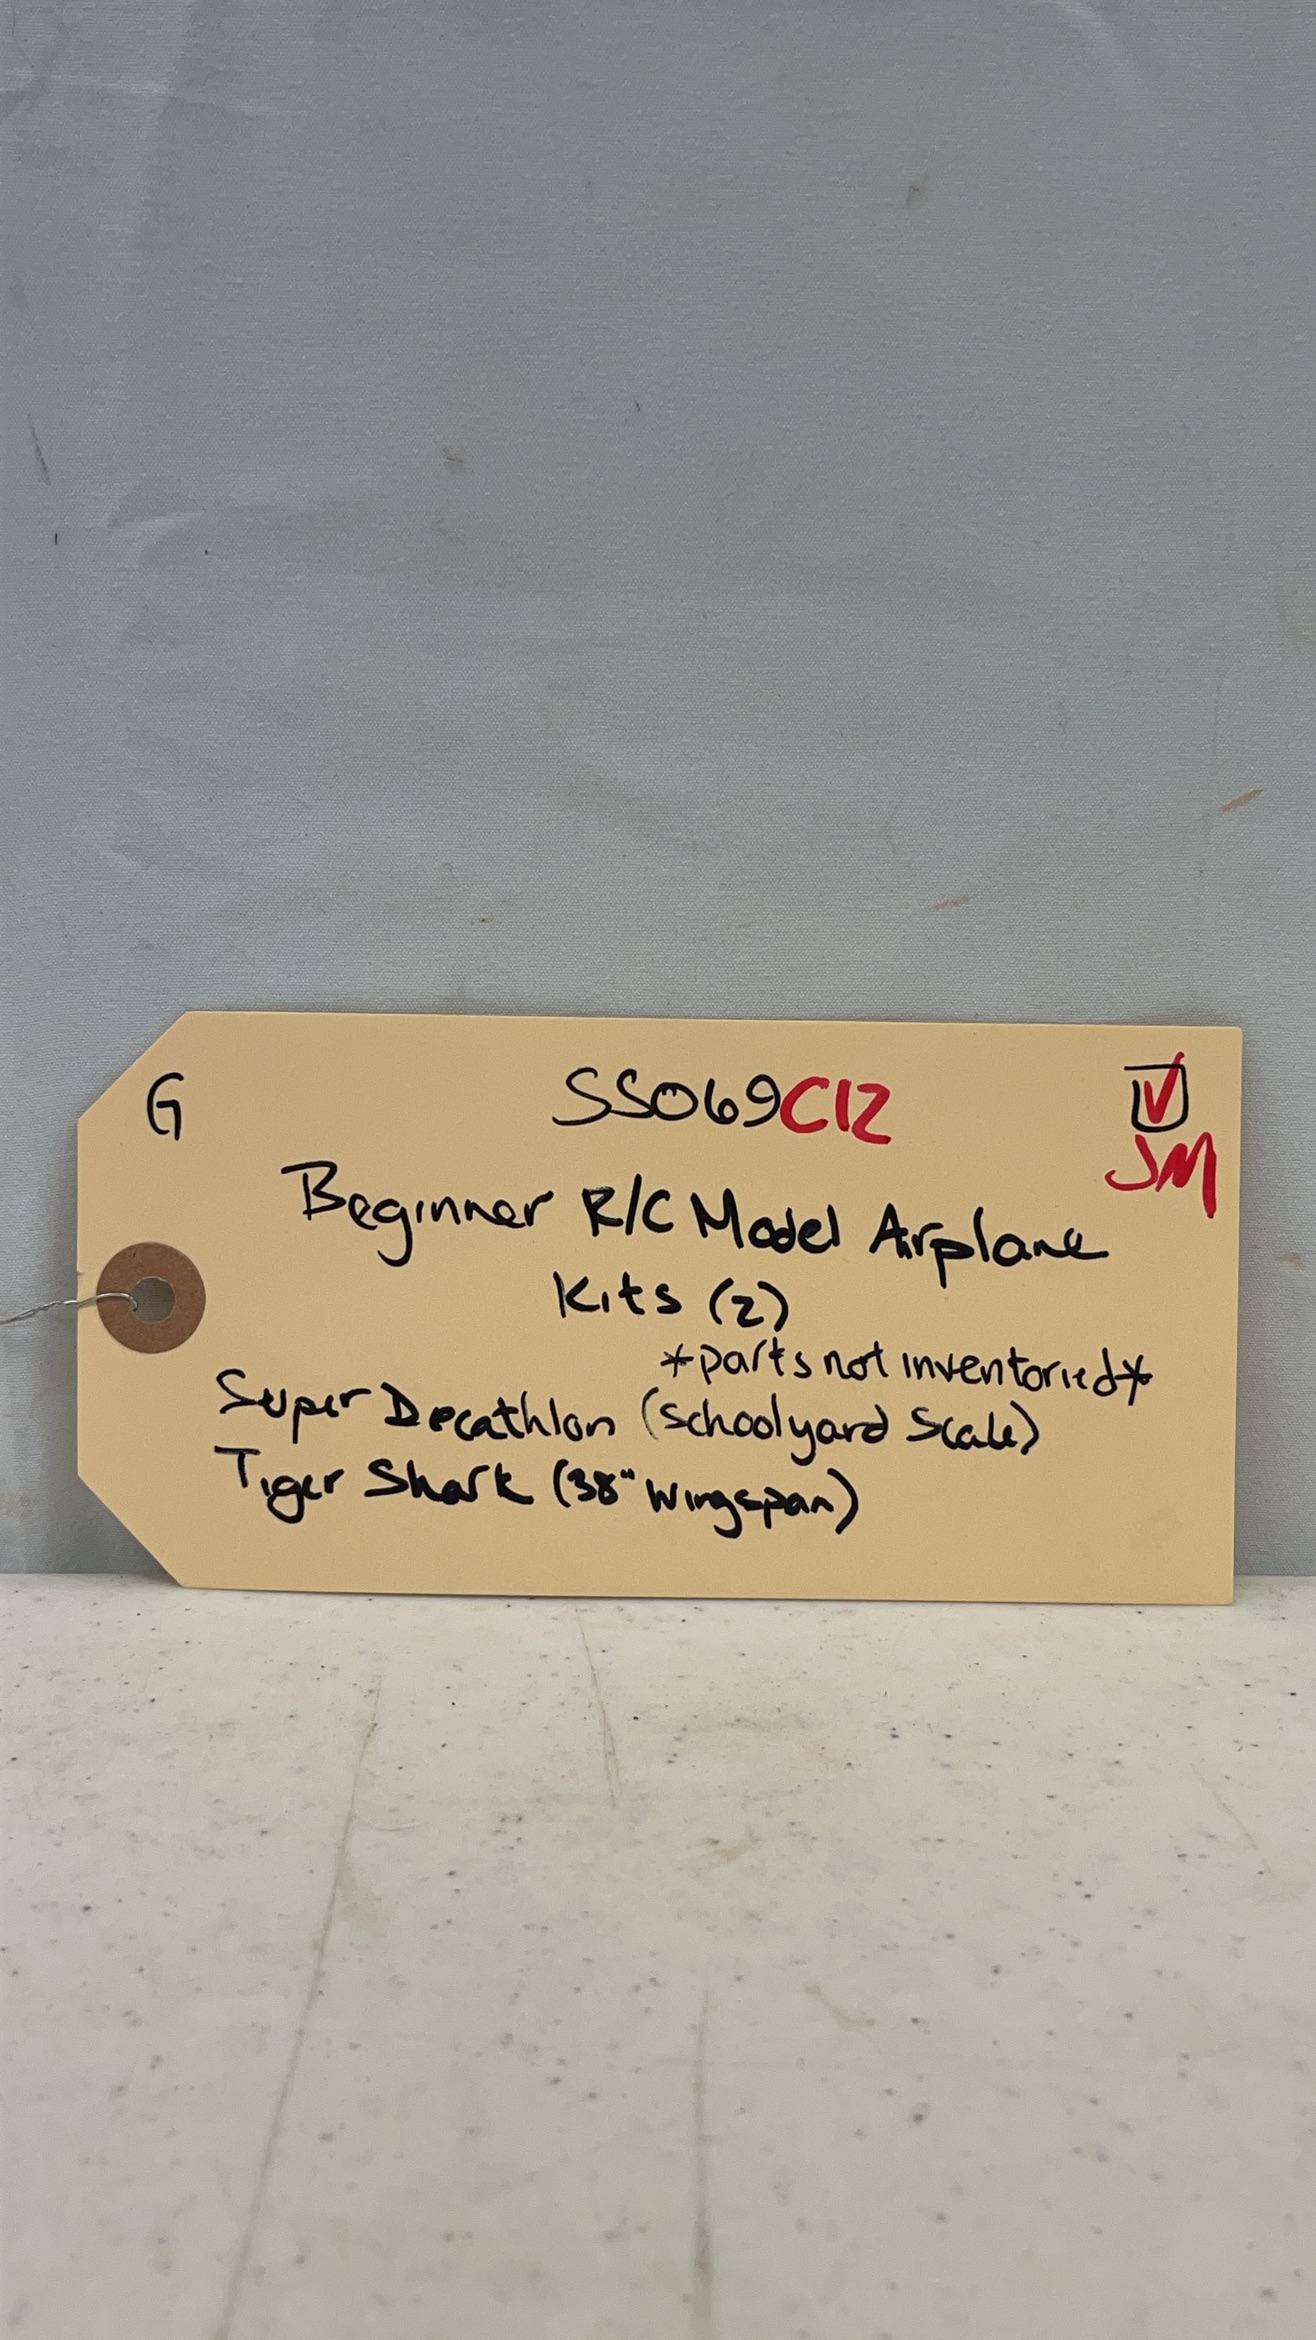 G
SS069C12
JM
Beginner R/C Model Airplane
Kits (2)
*parts not inventoried*
Super Decathlon (Schoolyard Scale)
Tiger Shark (38" Wingspan)